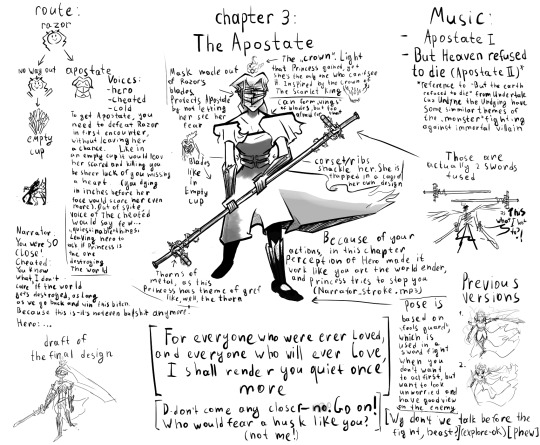 route:
razor
no way out
apostate
empty
cup
Voices:
-hero
-cheated
-cold
To get Apostate, you
need to defeat Razor
in first encounter,
without leaving her
a chance. Like in
an empty cup it would leave
her scared and killing you
be sheer luck of you missing
a heart (you dying
in inches before her
face would scare her even
more). Out of sure,
voice of the cheated
would say few
questionable things,
leading hero to
ask if Princess is
the one
destroying
the world
Narrator:
You were SO
CLOSE!
Cheated:
You know
what, I don't
care if the world
gets destroyed, as long
as we go back and win this bitch.
Because this is-it's not even bullshit anymore.
Hero:...
draft of
the final design
chapter 3:
The Apostate
The "crown". Light
that Princess gained, yet
she's the only one who can't see
it. Inspired by the crown of
The Scarlet King
(can form "wings"
of blades, but too
Mask made out
of Razor's
blades.
Protects Apostate
by not leving
her see her
fear
Blades
like
in
Empty
cup
corset/ribs
shackle her. She is
trapped in a cage of
her own design
Thorns of
metal, as this
Princess has theme of grief
like, well, the thorn
Because of your
actions in this chapter
Perception of Hero made it
work like you are the world ender,
and Princess tries to stop you
(Narrator_stroke.mp3)
For everyone who were ever Loved,
and everyone who will ever Love,
I shall render you quiet once
more
D-don't come any closer-no. Go on!
Who would fear a husk like you?
(not me!)
Music:
- Apostate I
- But Heaven refused
to die (Apostate II)*
*reference to "But the earth
refused to die" from Undertale,
as Undyne the Undying have
some similar themes of the
"monster" fighting
against immortal villain
Those are
actually 2 swords
fused
pose is
based on
"fools guard",
which is
used in a
sword fight
when you
don't want
to act first, but
want to look
unworried and
have good view
on the enemy
Previous
versions
1.
2.
[Why don't we talk before the
fight, beast?(explore-ok)][phew]